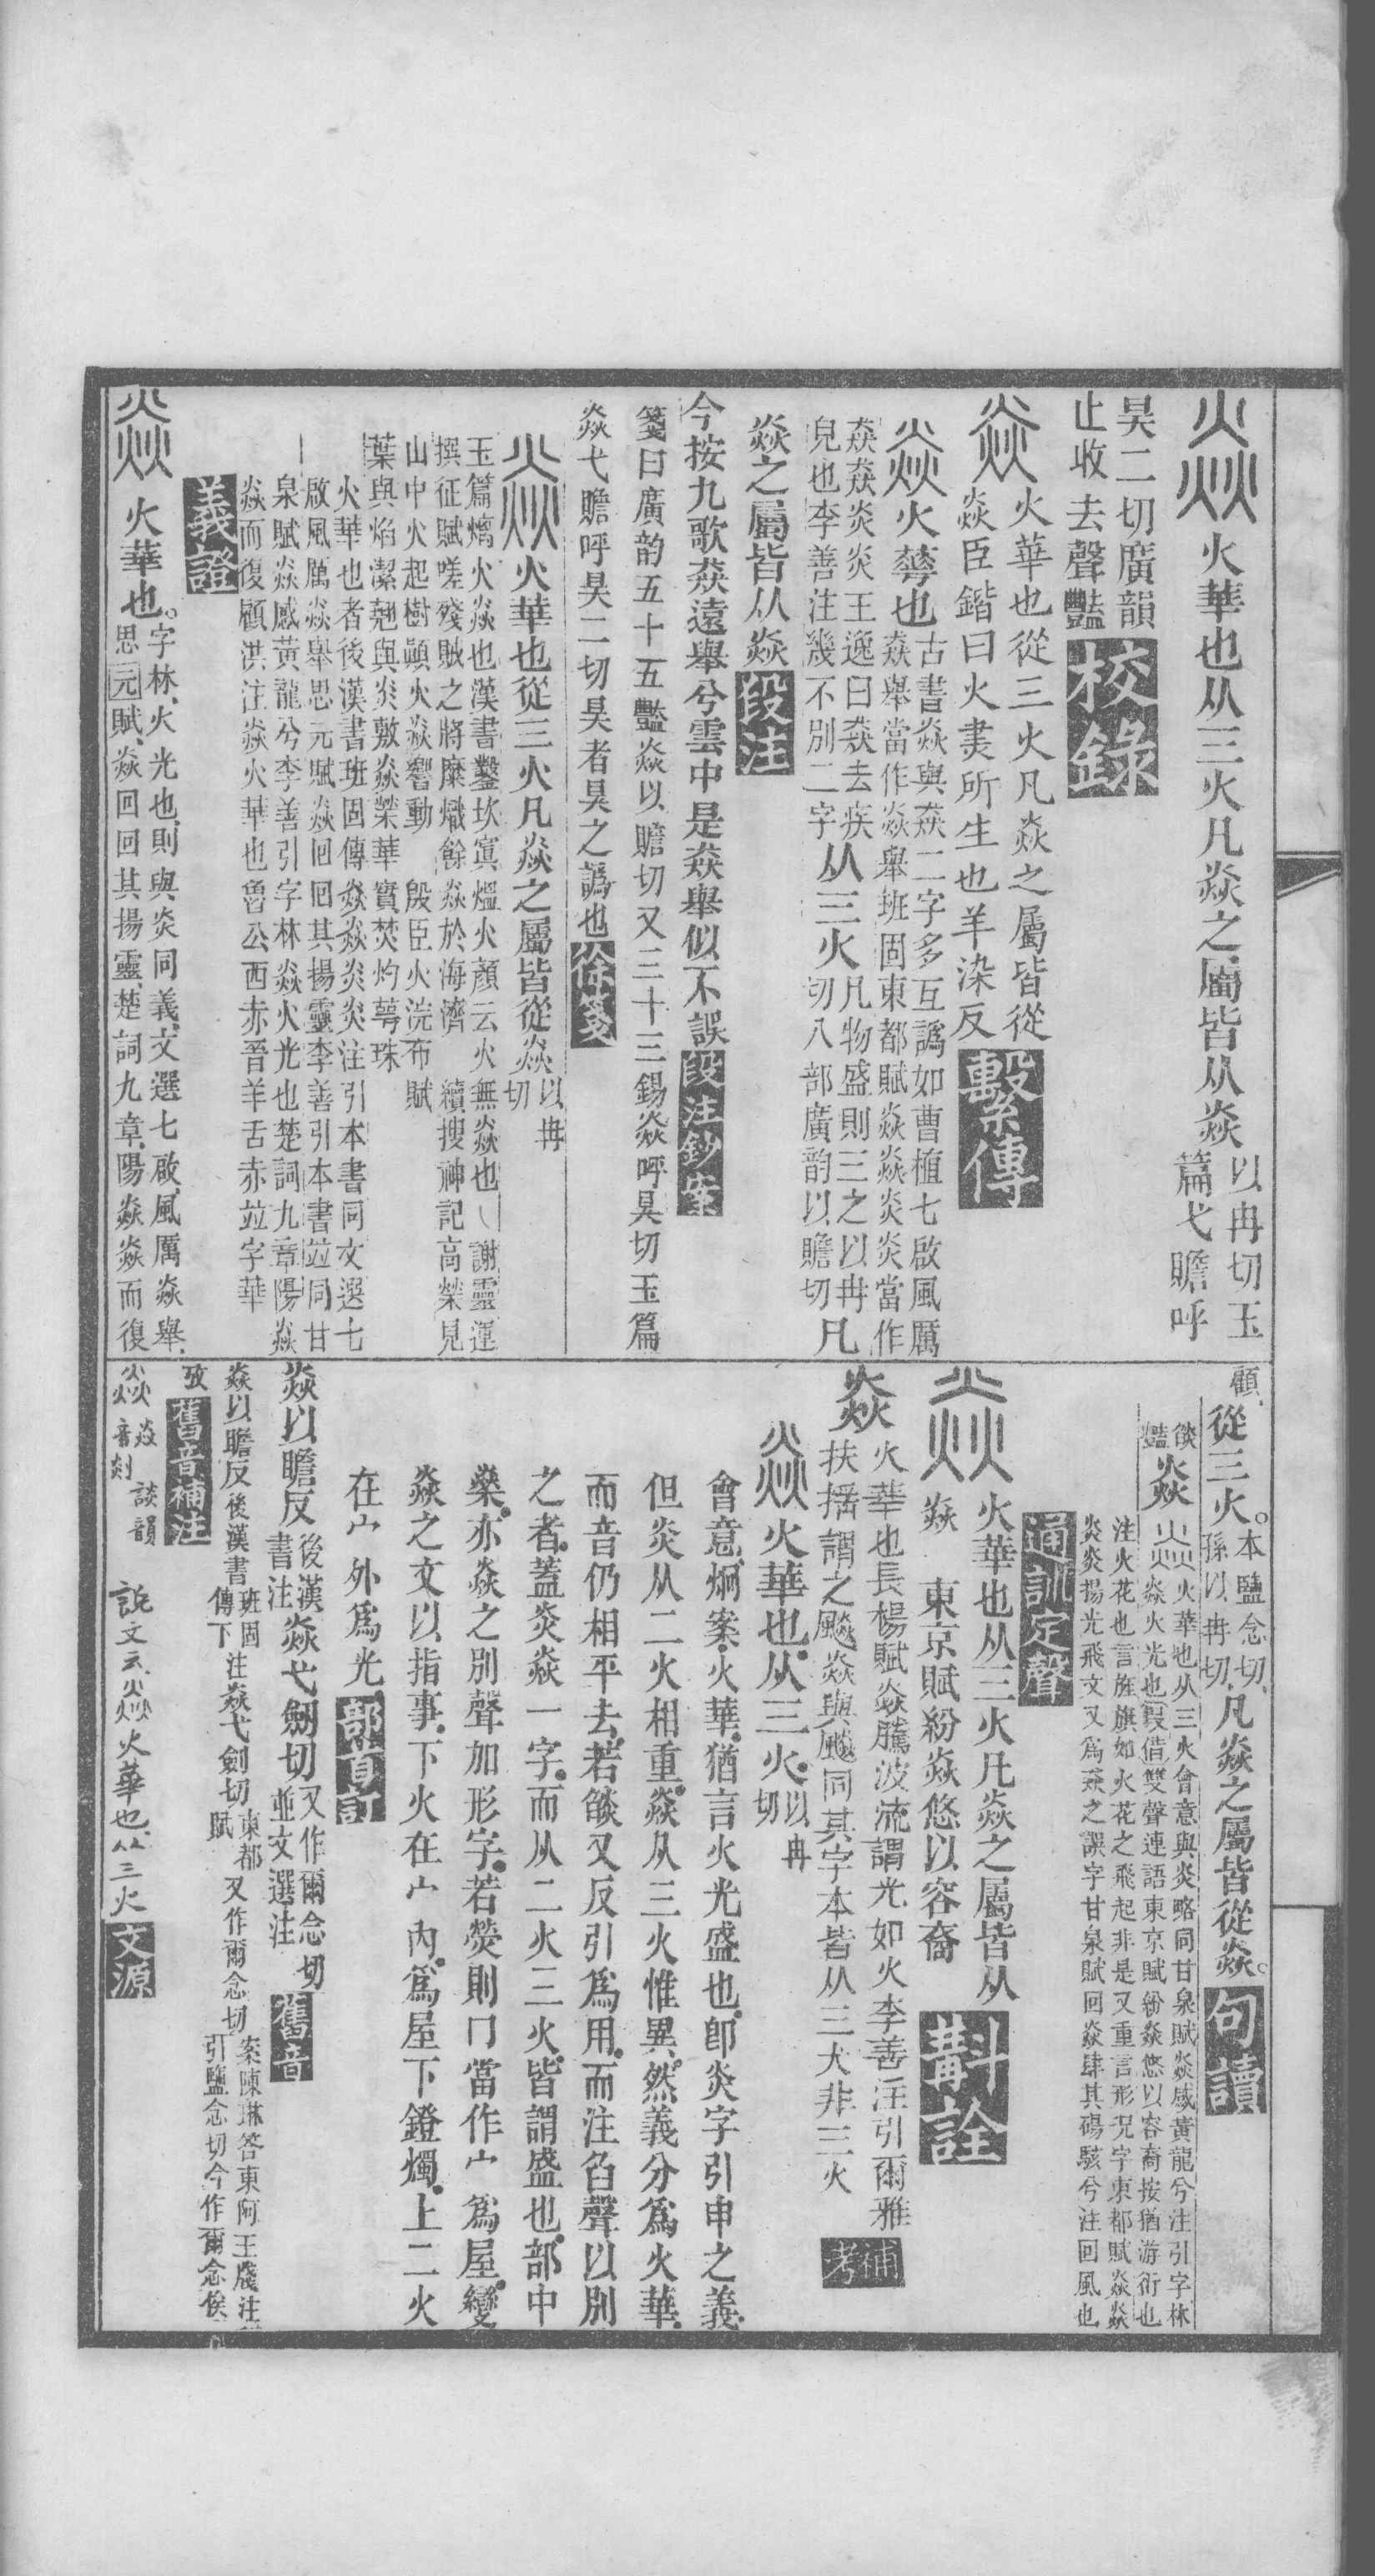 焱 火華也从三火凡焱之屬皆从焱
以冉切玉
篇弋贍呼
昊二切廣韻
止收去聲豔
校錄
焱 火華也從三火凡焱之屬皆從
焱臣鍇曰火燓所生也羊染反
繫傳
焱 火蕚也
古書焱與猋二字多互譌如曹植七啟風厲
猋舉當作焱舉班固東都賦焱焱炎炎當作
猋猋炎炎王逸曰猋去疾
皃也李善注幾不別二字
从三火
凡物盛則三之以冉
切八部廣韵以贍切
凡
焱之屬皆从焱
段注
今按九歌猋遠舉兮雲中是猋舉似不誤
段注鈔案
箋曰廣韵五十五豔焱以贍切又二十三錫焱呼昊切玉篇
焱弋贍呼昊二切昊者昊之譌也
徐箋
焱 火華也從三火凡焱之屬皆從焱
以冉
切
玉篇熵火焱也漢書鑿坎寘熅火顏云火無焱也 謝靈運
撰征賦嗟殘賊之將糜熾餘焱於海濟 續搜神記高榮見
山中火起樹顛火焱響動 殷臣火浣布賦
葉與焰潔翹與炎敷焱榮華實焚灼萼珠
火華也者後漢書班固傳焱焱炎炎注引本書同文選七
啟風厲焱舉思元賦焱回回其揚靈李善引本書竝同甘
泉賦焱感黃龍兮李善引字林焱火光也楚詞九章陽焱
焱而復顧洪注焱火華也魯公西赤晉羊舌赤竝字華
義證
焱 火華也。
字林、火光也、則與炎同義、文選七啟、風厲焱舉、
思元賦、焱回回其揚靈、楚詞九章、陽焱焱而復
顧、
從三火。
本鹽念切、
孫以冉切、
凡焱之屬皆從焱。
句讀
燄
豔
焱
焱火華也从三火會意與炎略同甘泉賦焱感黃龍兮注引字林
焱火光也叚借雙聲連語東京賦紛焱悠以容裔按猶游衍也
注火花也言旌旗如火花之飛起非是又重言形况字東都賦焱焱
炎炎揚光飛文又爲猋之誤字甘泉賦回焱肆其碭駭兮注回風也
通訓定聲
焱 火華也从三火凡焱之屬皆从
焱 東京賦紛焱悠以容裔
斠詮
焱
火華也長楊賦焱騰波流謂光如火李善注引爾雅
扶搖謂之飈焱與飈同其字本皆从三犬非三火
補考
焱 火華也、从三火、
以冉
切
會意、炯案、火華、猶言火光盛也、卽炎字引申之義、
但炎从二火相重、焱从三火惟異、然義分爲火華、
而音仍相平去、若燄又反引爲用、而注臽聲以別
之者、蓋炎焱一字、而从二火三火、皆謂盛也、部中
燊、亦焱之別聲加形字、若熒則冂當作宀爲屋、變
焱之文以指事、下火在宀內、爲屋下鐙燭、上二火
在宀外爲光、
部首訂
焱以贍反
後漢
書注
焱弋劒切
又作爾念切
並文選注
舊音
焱以贍反
後漢書
班固
傳下
注焱弋劍切
東都
賦
又作爾念切
案陳琳答東阿王牋注
引鹽念切今作爾念俟
攷
舊音補注
焱 音剡 談韻 說文云焱火華也从三火
文源